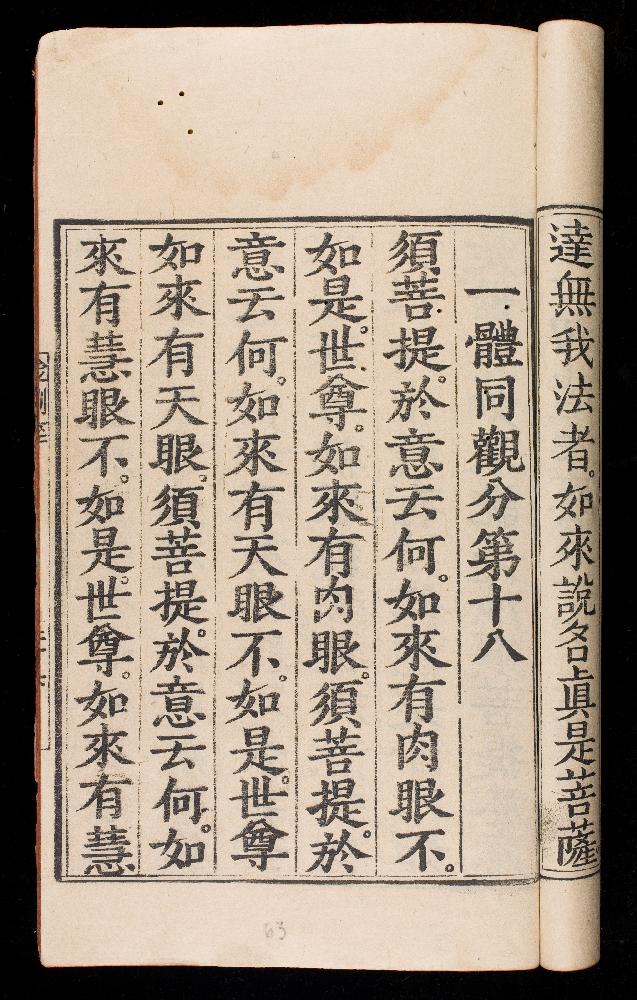 達無我法者。如來說名眞是菩薩
一體同觀分第十八
須菩提。於意云何。如來有肉眼不。
如是。世尊。如來有肉眼。須菩提。於
意云何。如來有天眼不。如是。世尊
如來有天眼。須菩提。於意云何。如
來有慧眼不。如是。世尊。如來有慧
63